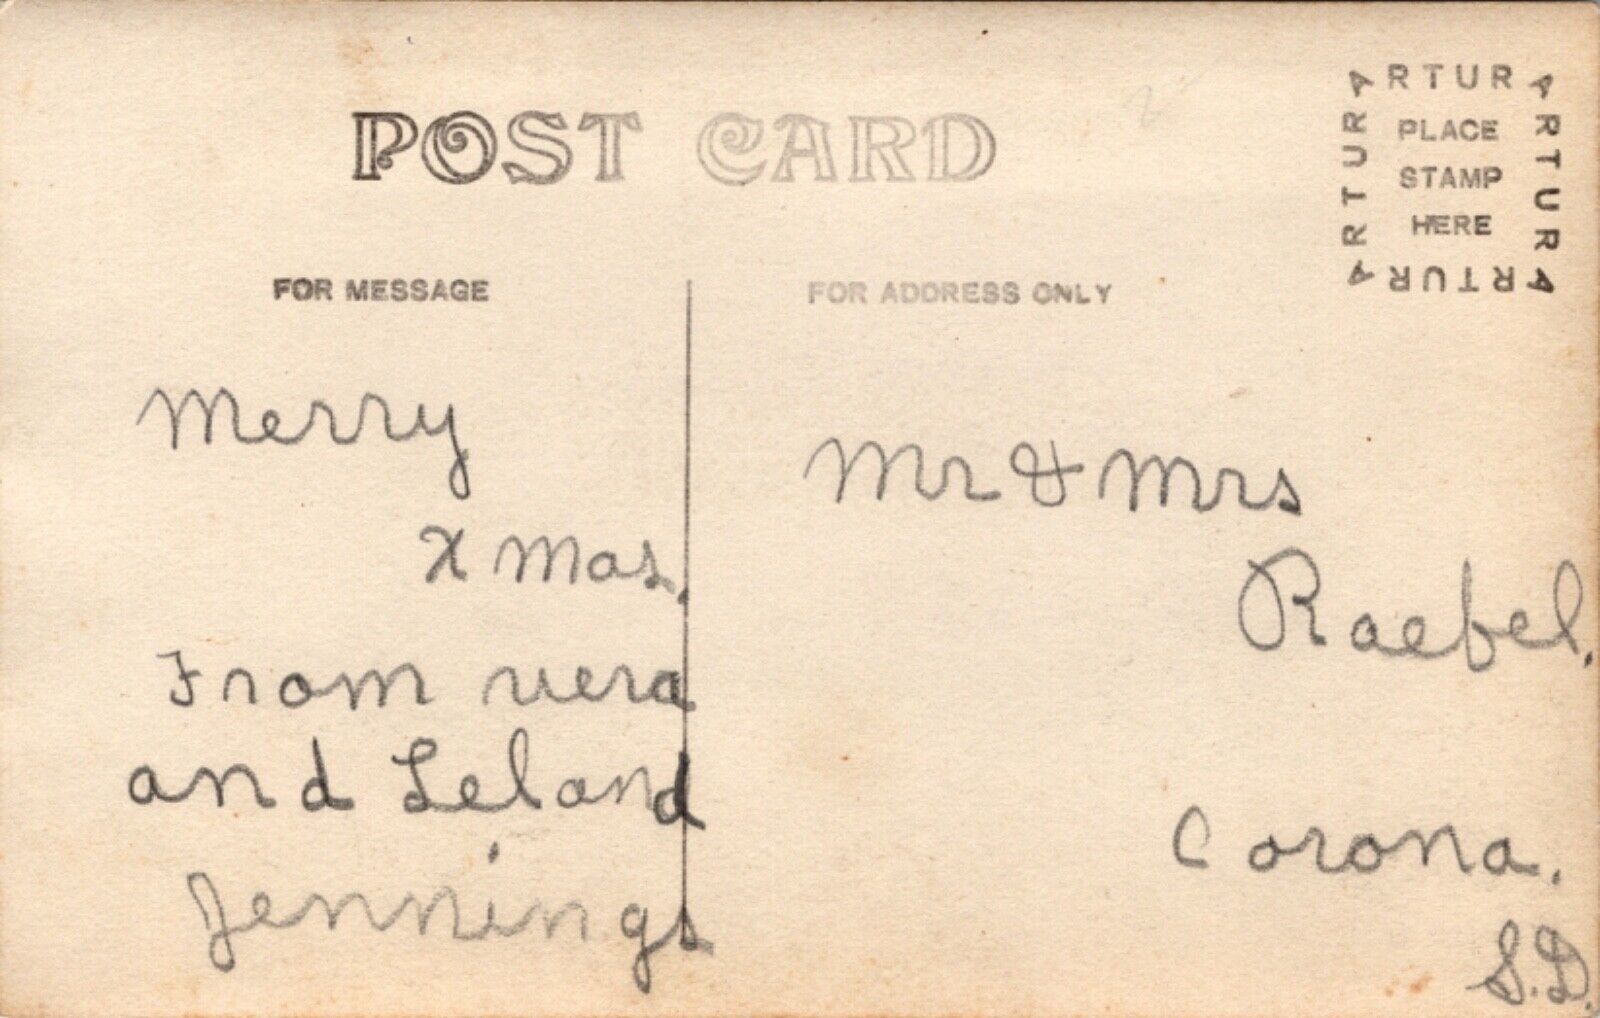 POST CARD
ARTURA
PLACE
STAMP
HERE
ARTURA
ARTURA
ARTURA
FOR MESSAGE
FOR ADDRESS ONLY
Merry
X mas.
From vera
and Leland
Jennings
Mr & Mrs
Raebel.
Corona.
S.D.